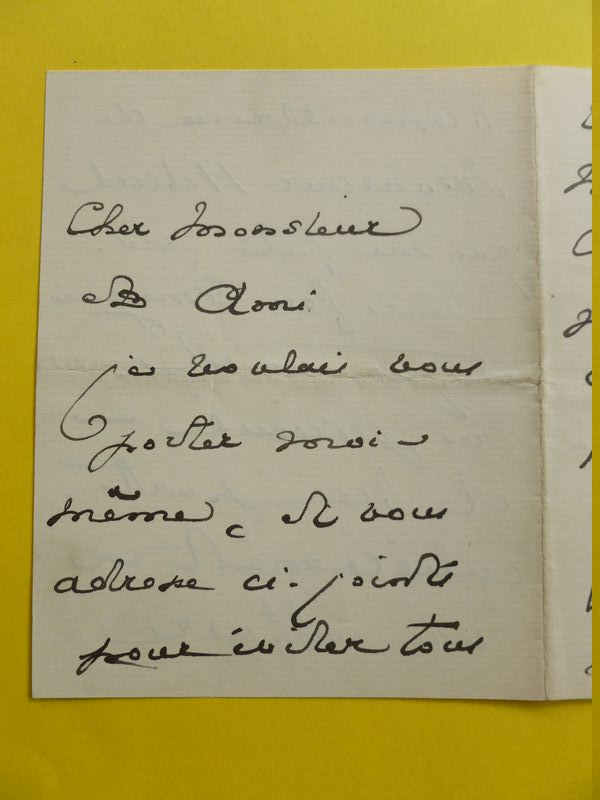 Cher Monsieur
et Ami
je voulais vous
porter moi-
même, et vous
adresse ci-joints
pour éviter tous